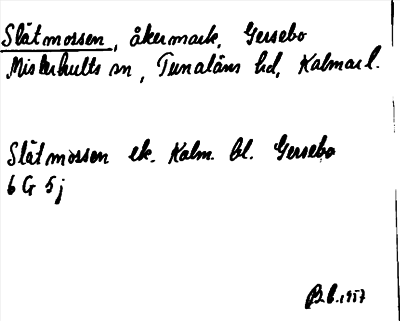 Slätmossen, åkermark, Gersebo
Misterhults sn, Tunaläns hd, Kalmar l.
Slätmossen ek. Kalm. bl. Gersebo
6 G 5 j
1957